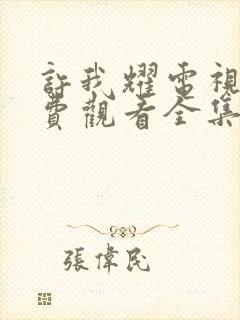 許我耀電視
費觀看全集
張偉民